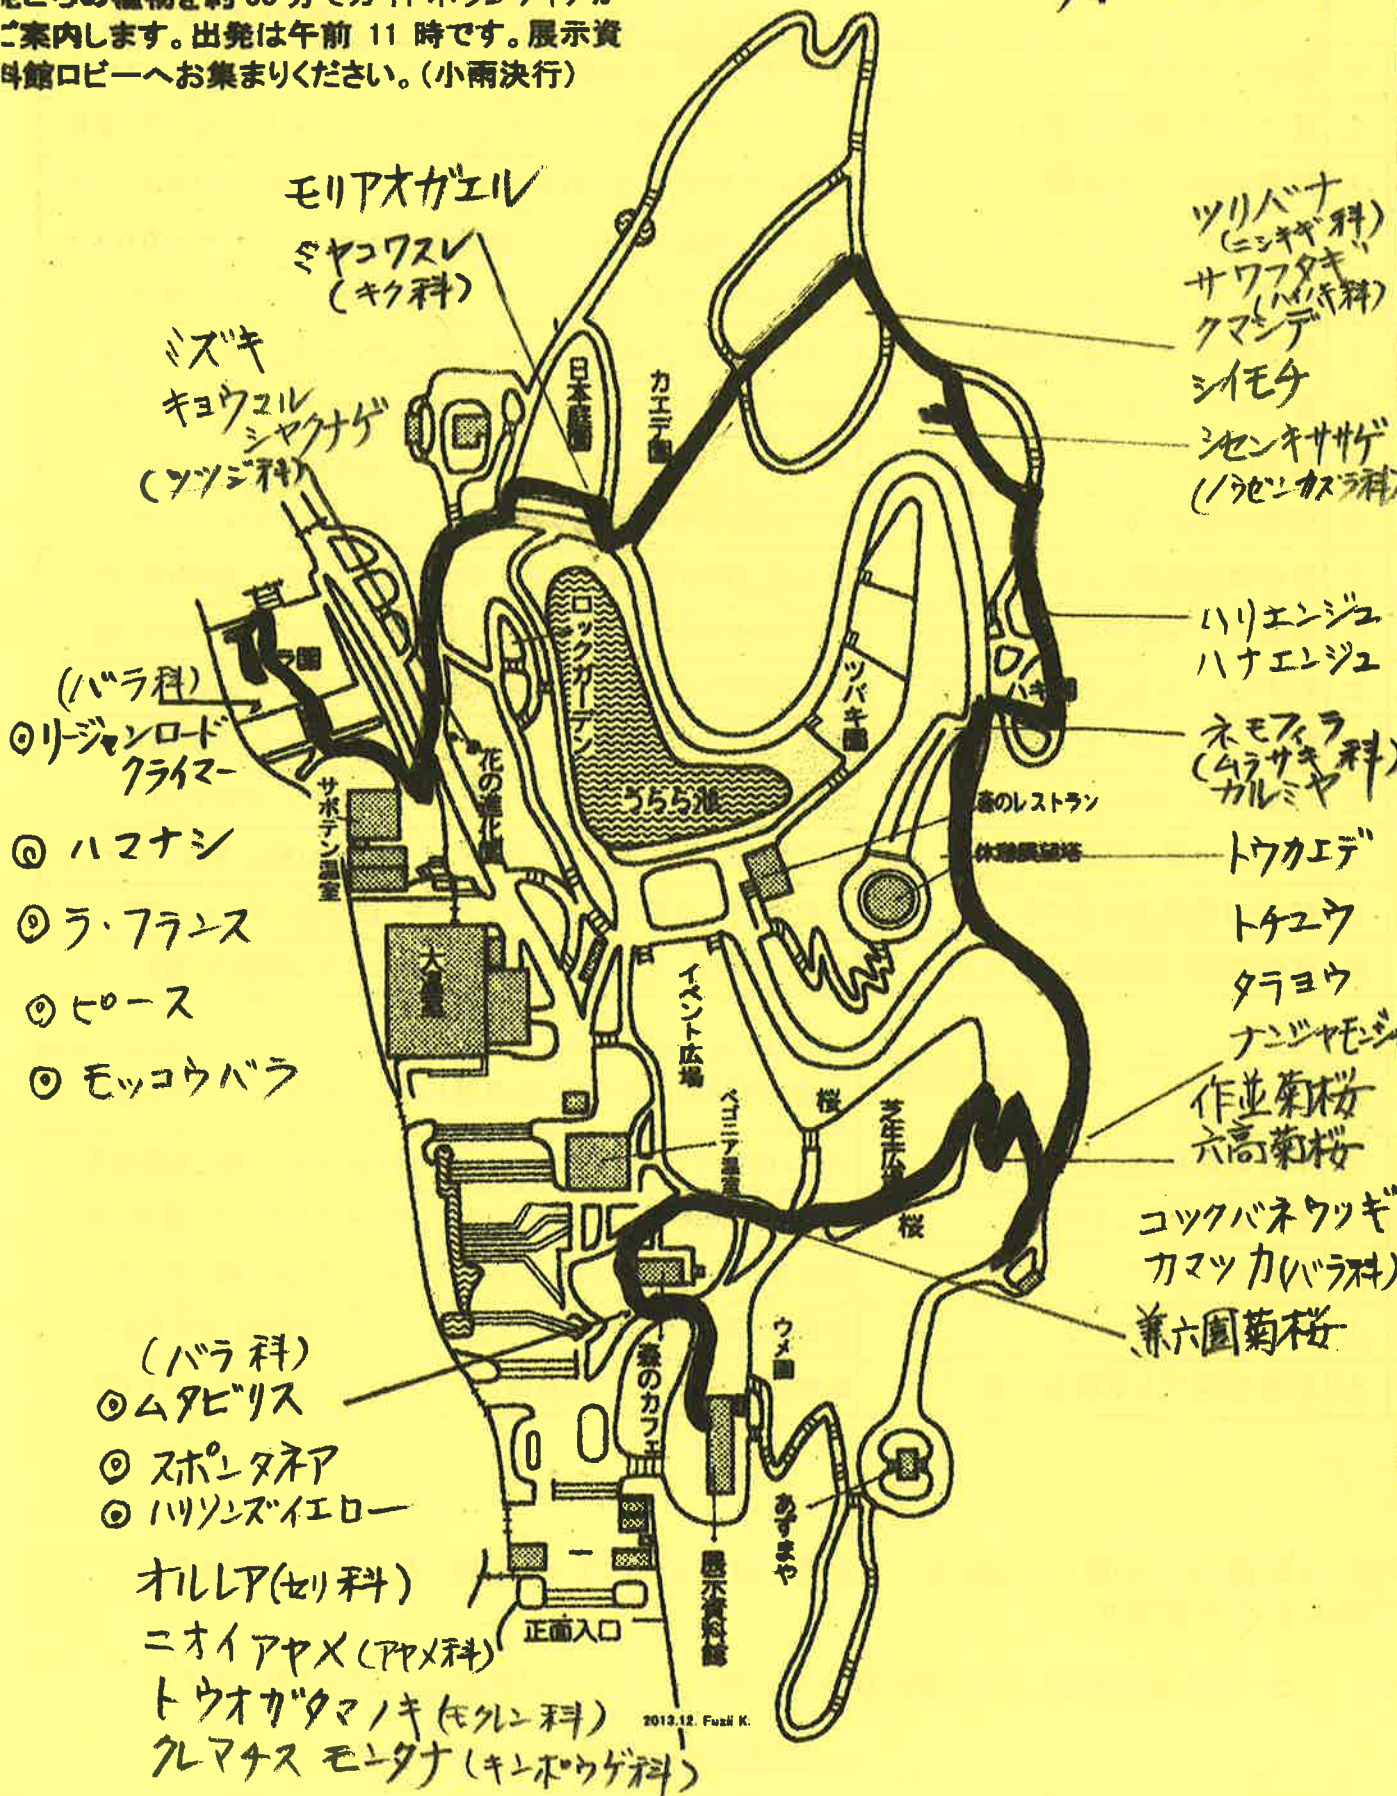 ご案内します。出発は午前 11 時です。展示資
料館ロビーへお集まりください。(小雨決行)
モリアオガエル
ミヤコワスレ
(キク科)
ミズキ
キョウマル
シャクナゲ
(ツツジ科)
(バラ科)
◎リージャンロード
クライマー
◎ ハマナシ
◎ ラ・フランス
◎ ピース
◎ モッコウバラ
(バラ科)
◎ムタビリス
◎ スポンタネア
◎ ハリソンズイエロー
オルレア(セリ科)
ニオイアヤメ(アヤメ科)
トウオガタマノキ(モクレン科)
クレマチス モンタナ(キンポウゲ科)
ツリバナ
(ニシキギ科)
サワフタギ
(ハイノキ科)
クマシデ
シイモチ
シセンキササゲ
(ノウゼンカズラ科)
ハリエンジュ
ハナエンジュ
ネモフィラ
(ムラサキ科)
カルミヤ
トウカエデ
トチュウ
タラヨウ
ナンジャモンジャ
作並菊桜
六高菊桜
コックバネウツギ
カマツカ(バラ科)
兼六園菊桜
日本庭園
カエデ園
ロックガーデン
うらら池
ツバキ園
ハギ園
森のレストラン
休憩展望塔
花の進化園
サボテン温室
大温室
イベント広場
ベゴニア温室
桜
芝生広場
桜
ウメ園
森のカフェ
あずまや
展示資料館
正面入口
2013.12. Fuzii K.